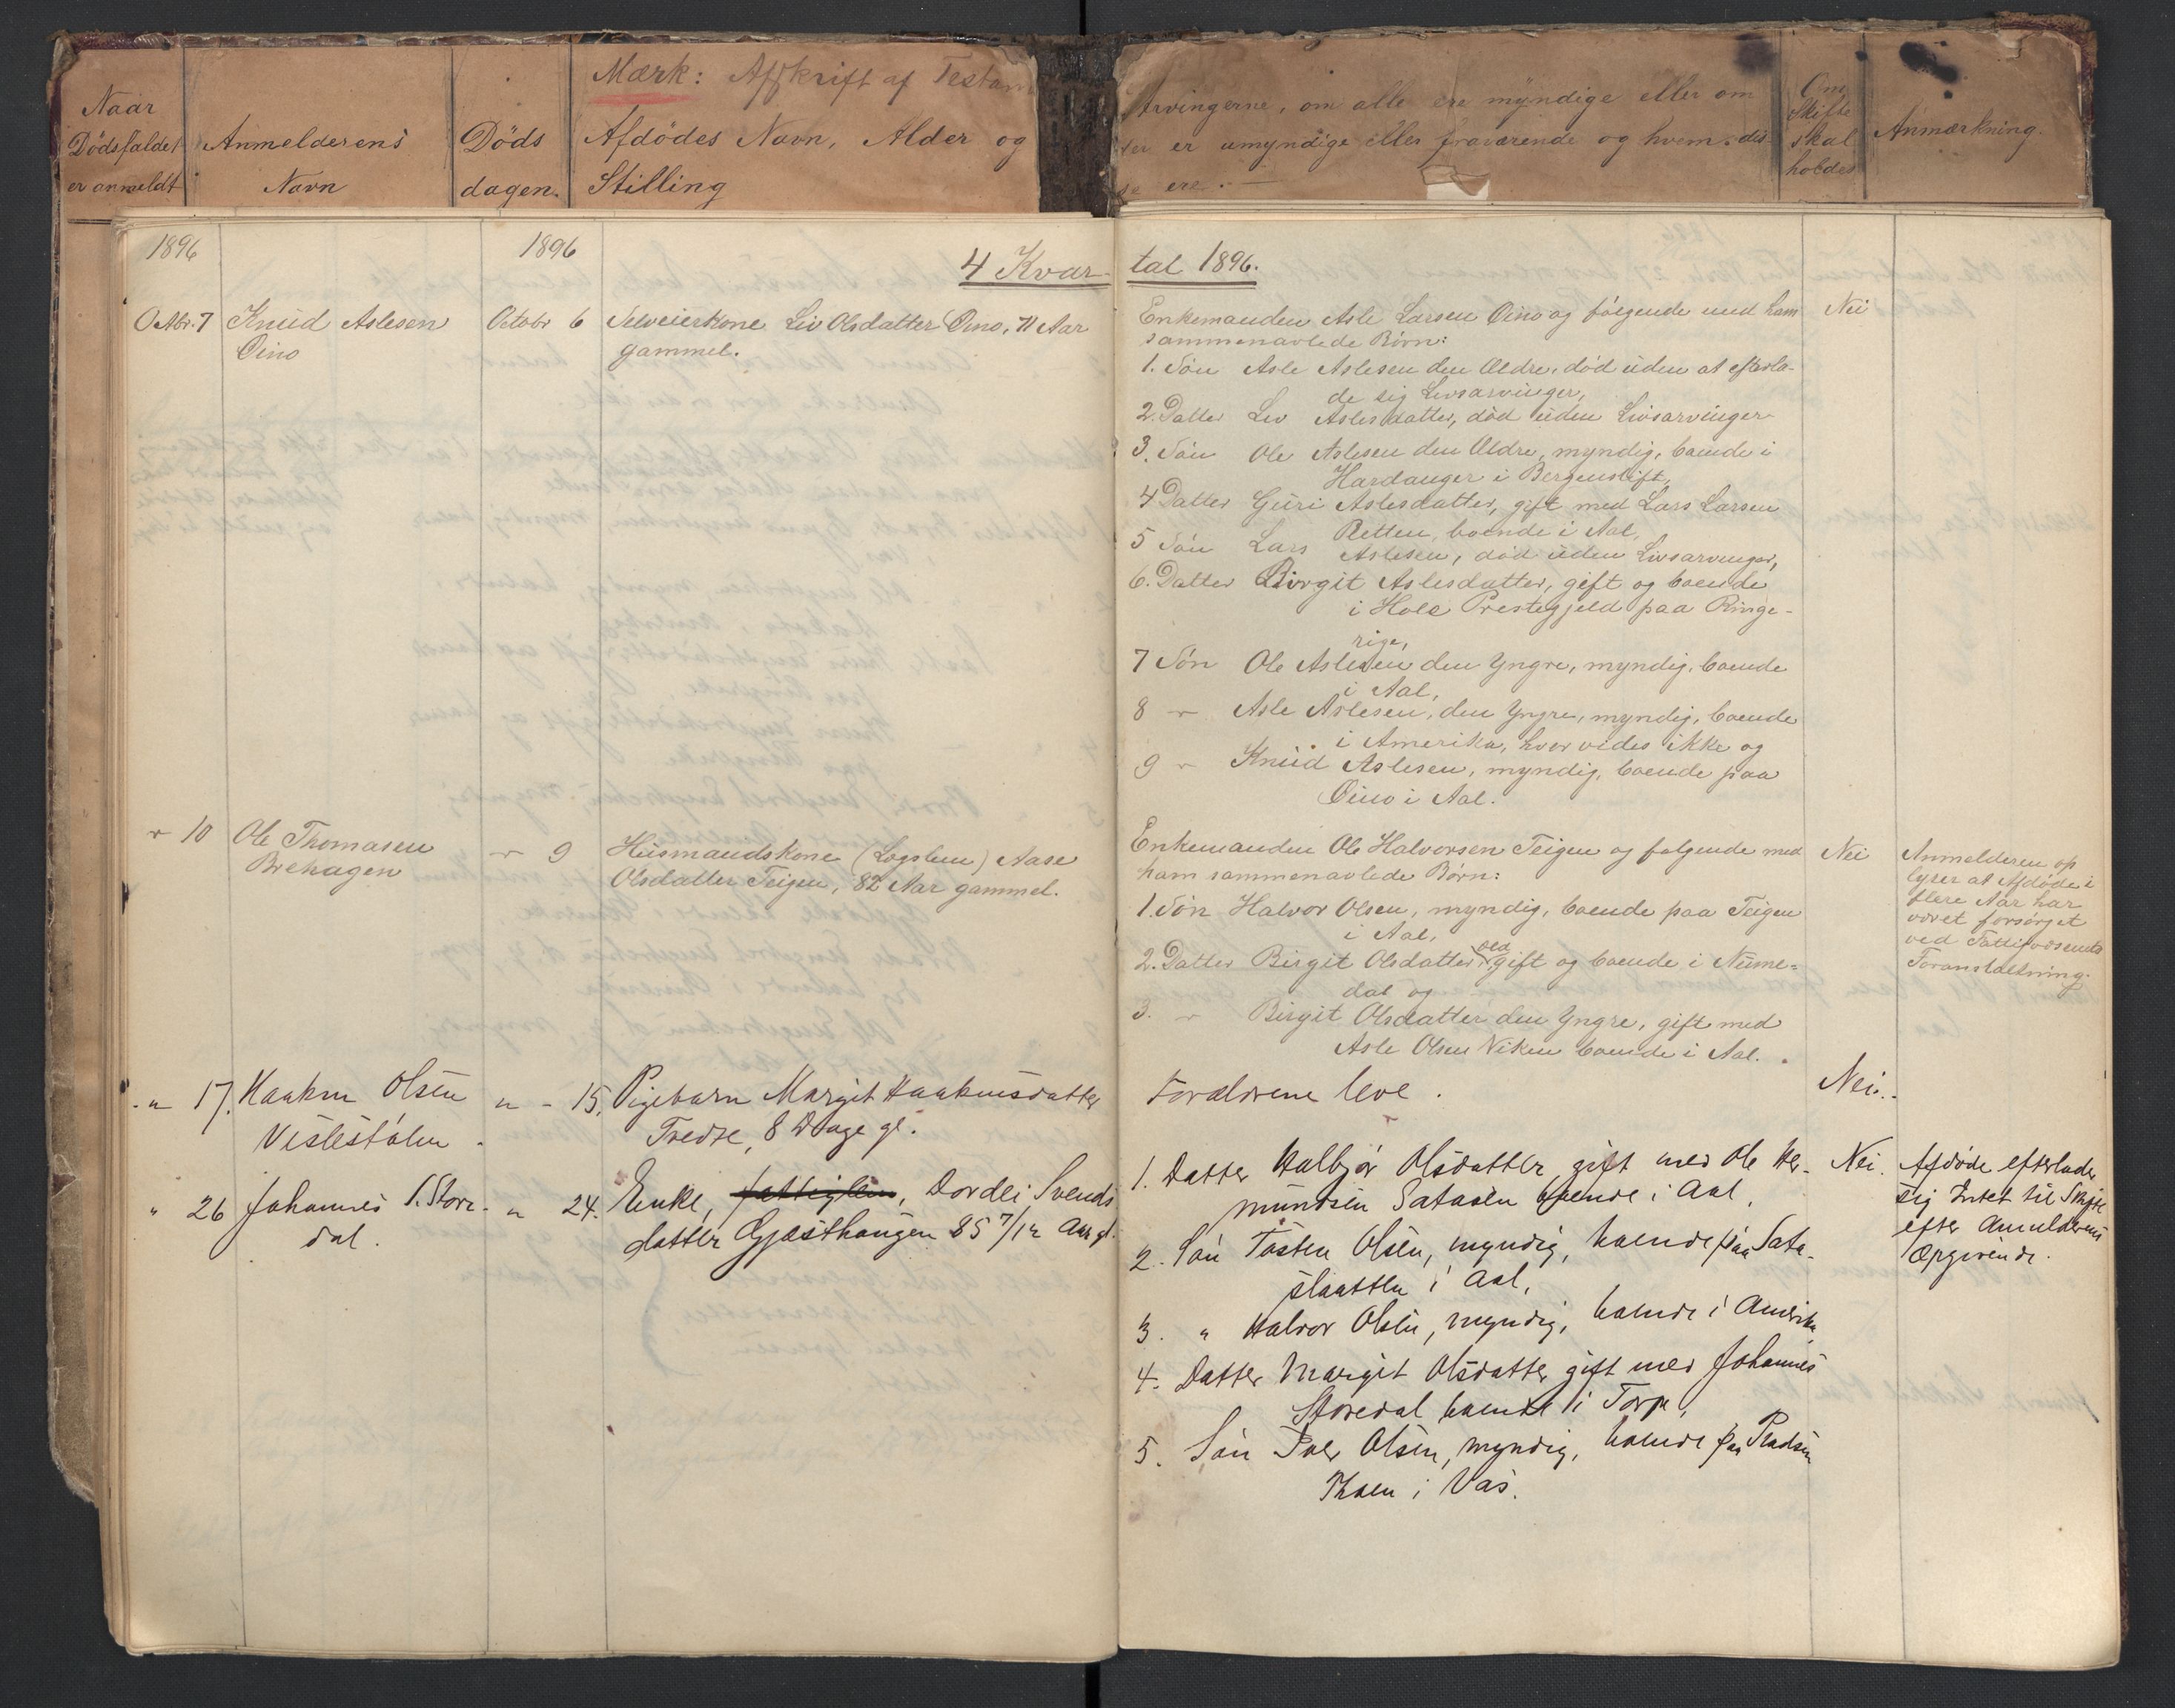 Mærk: Afskrift af Testam
Naar
Dödsfaldet
er anmeldt
Anmelderens
Navn
Döds
dagen.
Afdödes Navn, Alder og
Stilling
Arvingerne, om alle ere myndige eller om
er umyndige eller fraværende og hvem dis-
se ere.
Om
Skifte
skal
holdes
Anmærkning.
1896
1896
4 Kvar-
tal 1896.
Octbr. 7
Knud Aslesen
Öino
Octobr 6
Selveierkone Liv Olsdatter Öino, 71 Aar
gammel.
Enkemanden Asle Larsen Öino og følgende med ham
sammenavlede Börn:
1. Sön Asle Aslesen den Ældre, död uden at efterla-
de sig Livsarvinger,
2. Datter Liv Aslesdatter, död uden Livsarvinger
3. Sön Ole Aslesen den Ældre, myndig, boende i
Hardanger i Bergenstift,
4 Datter Guri Aslesdatter, gift med Lars Larsen
Retten, boende i Aal,
5 Sön Lars Aslesen, död uden Livsarvinger,
6. Datter Birgit Aslesdatter, gift og boende
i Hole Prestegjeld paa Ringe-
rige,
7 Sön Ole Aslesen den Yngre, myndig, boende
i Aal,
8 " Asle Aslesen, den Yngre, myndig, boende
i Amerika, hvor vides ikke og
9 " Knud Aslesen, myndig, boende paa
Öino i Aal.
Nei
" 10
Ole Thomasen
Brehagen
" 9
Husmandskone (Lægslem) Aase
Olsdatter Teigen, 82 Aar gammel.
Enkemanden Ole Halvorsen Teigen og følgende med
ham sammenavlede Börn:
1. Sön Halvor Olsen, myndig, boende paa Teigen
i Aal,
2. Datter Birgit Olsdatter æld gift og boende i Nume-
dal og
3. " Birgit Olsdatter den Yngre, gift med
Asle Olsen Viken boende i Aal.
Nei
Anmelderen op
lyser at Afdöde i
flere Aar har
været forsörget
ved Fattigvæsenets
Foranstaltning.
" 17.
Haakon Olsen
Veslestölen
" - 15.
Pigebarn Margit Haakonsdatter
Tredje, 8 Dage gl.
Forældrene leve.
Nei.
" 26
Johannes S. Store-
dal.
" 24.
Enke, fattiglem, Dordei Svends
datter Gjæsthaugen 85 7/12 Aar gl.
1. Datter Halbjör Olsdatter gift med Ole Her-
mundsen Sataöen boende i Aal,
2. Sön Tosten Olsen, myndig, boende paa Sata-
slaatten i Aal,
3. " Halvor Olsen, myndig, boende i Amerika
4. Datter Margit Olsdatter gift med Johannes
Storedal boende i Torpe,
5. Sön Iver Olsen, myndig, boende paa Pladsen
Thoen i Vas.
Nei.
Afdöde efterlader
sig Intet til Skifte
efter Anmelderens
Opgivende.